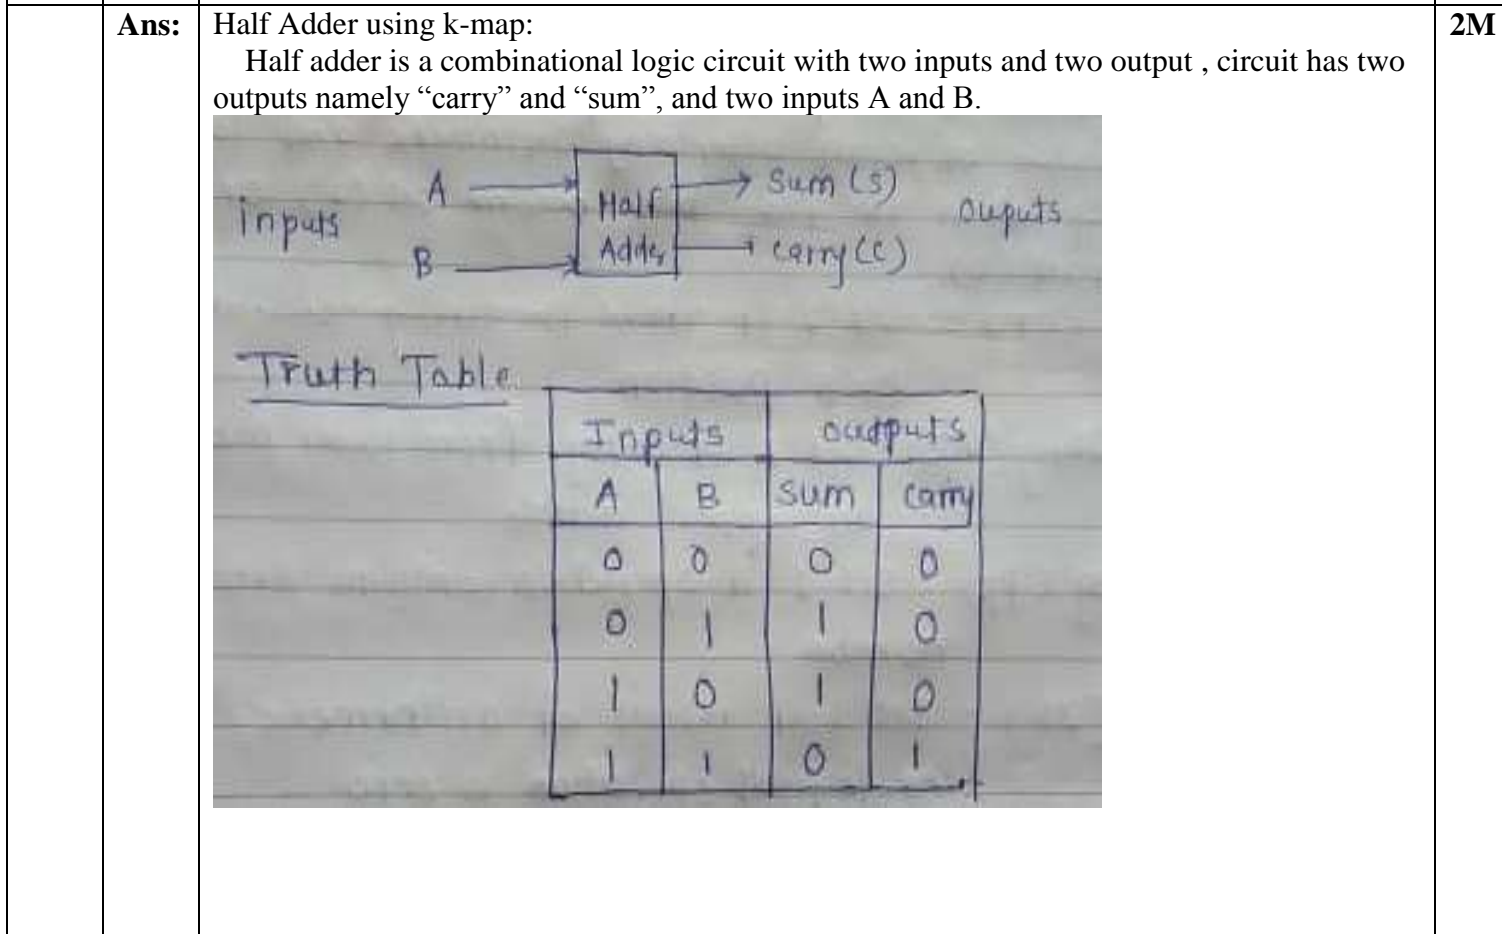 Ans: Half Adder using k-map: 2M
Half adder is a combinational logic circuit with two inputs and two output , circuit has two
outputs namely “carry” and “sum”, and two inputs A and B.
A Half Sum (S)
inputs ouputs
B Adder carry (C)
Truth Table
Inputs outputs
A B sum carry
0 0 0 0
0 1 1 0
1 0 1 0
1 1 0 1